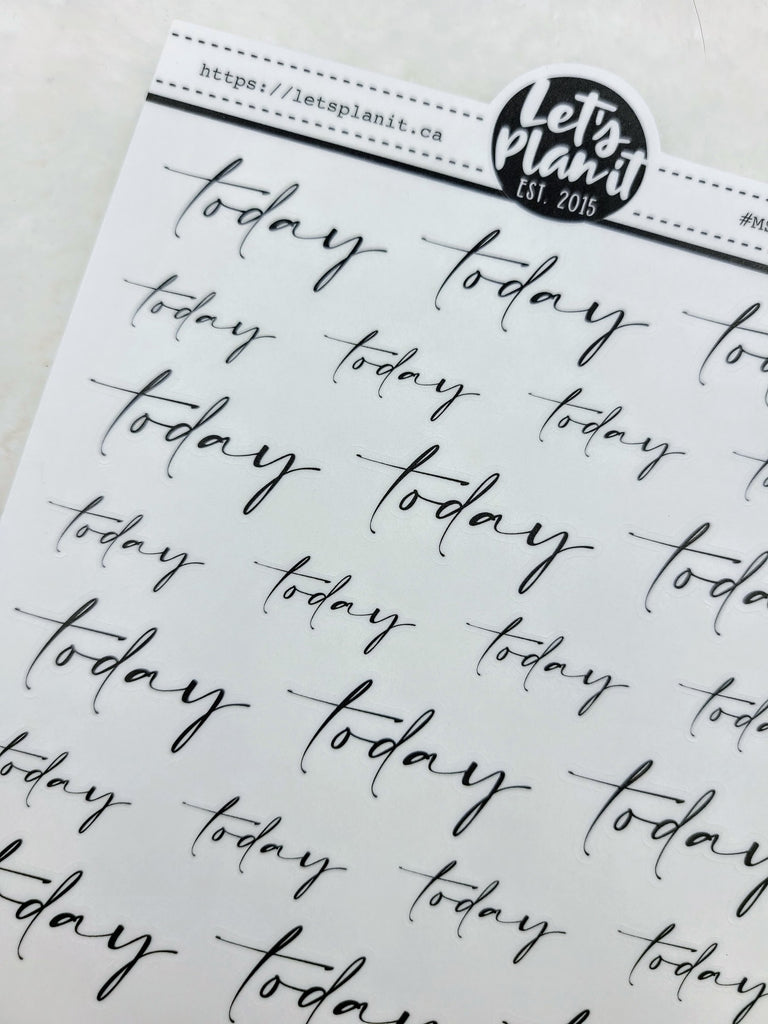 https://letsplanit.ca
Let's
plan it
EST. 2015
#MS
today today to
today today today t
today today toda
today today today toda
today today today
today today today today
today today